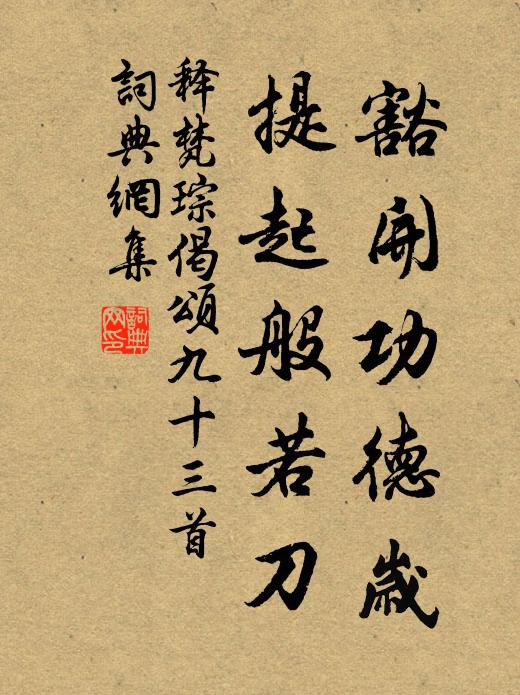 豁開功德歲
提起般若刀
释梵琮偈頌九十三首
詞典網集
詞典
网印